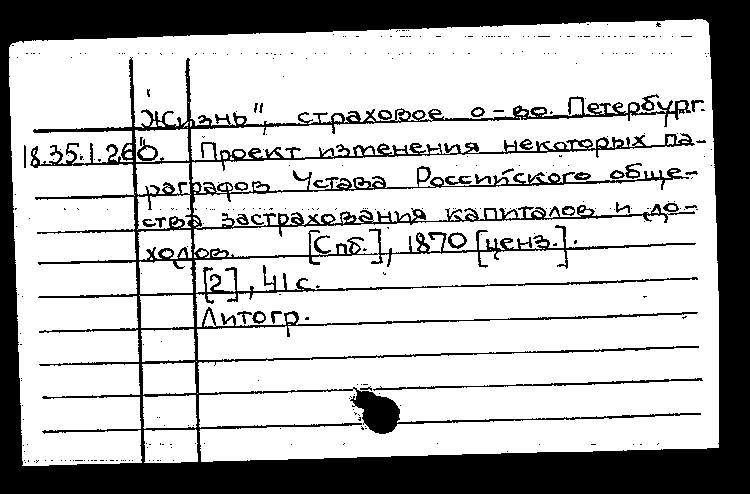 "Жизнь", страховое о-во. Петербург.
18.35.1.260. Проект изменения некоторых па-
раграфов Устава Российского обще-
ства застрахования капиталов и до-
ходов. [Спб.], 1870 [ценз.].
[2], 41 с.
Литогр.